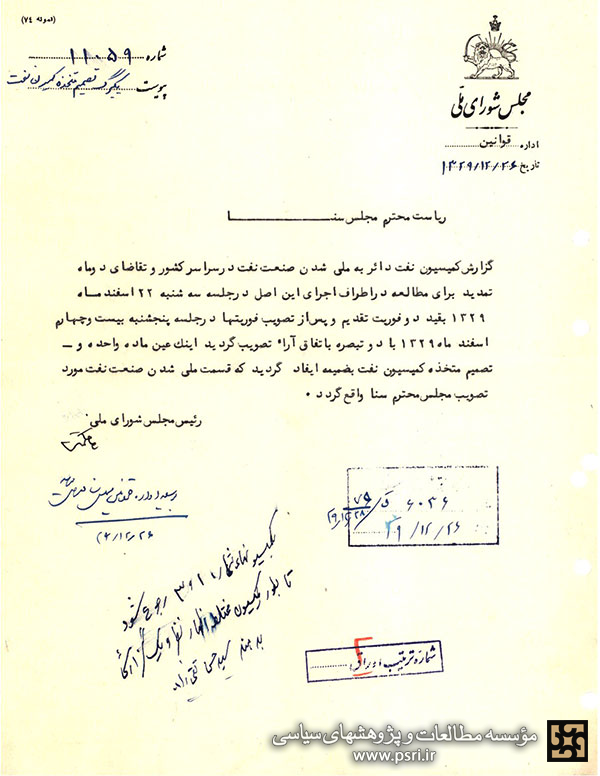 (نمونه ۷۴)
مجلس شورای ملی
اداره قوانین
تاریخ ۱۳۲۹/۱۲/۲۶
شماره ۱۱۰۵۹
پیوست یکبرگ تصمیم متخذه کمیسیون نفت
ریاست محترم مجلس سنا
گزارش کمیسیون نفت دائر به ملی شدن صنعت نفت در سراسر کشور و تقاضای دوماه
تمدید برای مطالعه در اطراف اجرای این اصل در جلسه سه شنبه ۲۲ اسفند ماه
۱۳۲۹ بقید دو فوریت تقدیم و پس از تصویب فوریتها در جلسه پنجشنبه بیست و چهارم
اسفند ماه ۱۳۲۹ با دو تبصره با تفاق آراء تصویب گردید اینك عین ماده واحده و ــ
تصمیم متخذه کمیسیون نفت بضمیمه ایفاد گردید که قسمت ملی شدن صنعت نفت مورد
تصویب مجلس محترم سنا واقع گردد ۰
رئیس مجلس شورای ملی ـ
۶۰۳۶
۲۹/۱۲/۲۶
۲۹/۱۲/۲۶
بکمیسیونهای شماره ۱ و ۳ رجوع شود
تا بطور کمیسیون مختلط اظهار نظر و یک گزارش
بدهند سید حسن تقی زاده
شماره ترتیب اوراق
مؤسسه مطالعات و پژوهشهای سیاسی
www.psri.ir